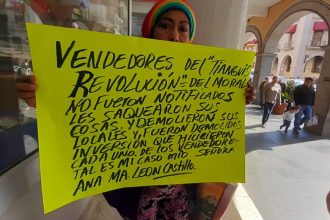 VENDEDORES DEL "TIANGUIS
REVOLUCIÓN" DEL MORAL
NO FUERON NOTIFICADOS
LES SAQUEARON SUS
COSAS Y DEMOLIERON SUS
LOCALES Y, FUERON DEMOLIDOS
INVERSIÓN QUE HICIERON
CADA UNO DE LOS VENDEDORES
TAL ES MI CASO MIO SEÑORA
ANA MA. LEON CASTILLO.